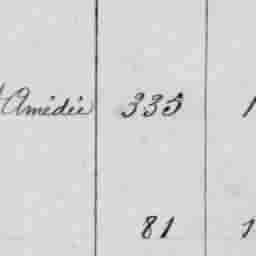 Amédée 335 1
81 1